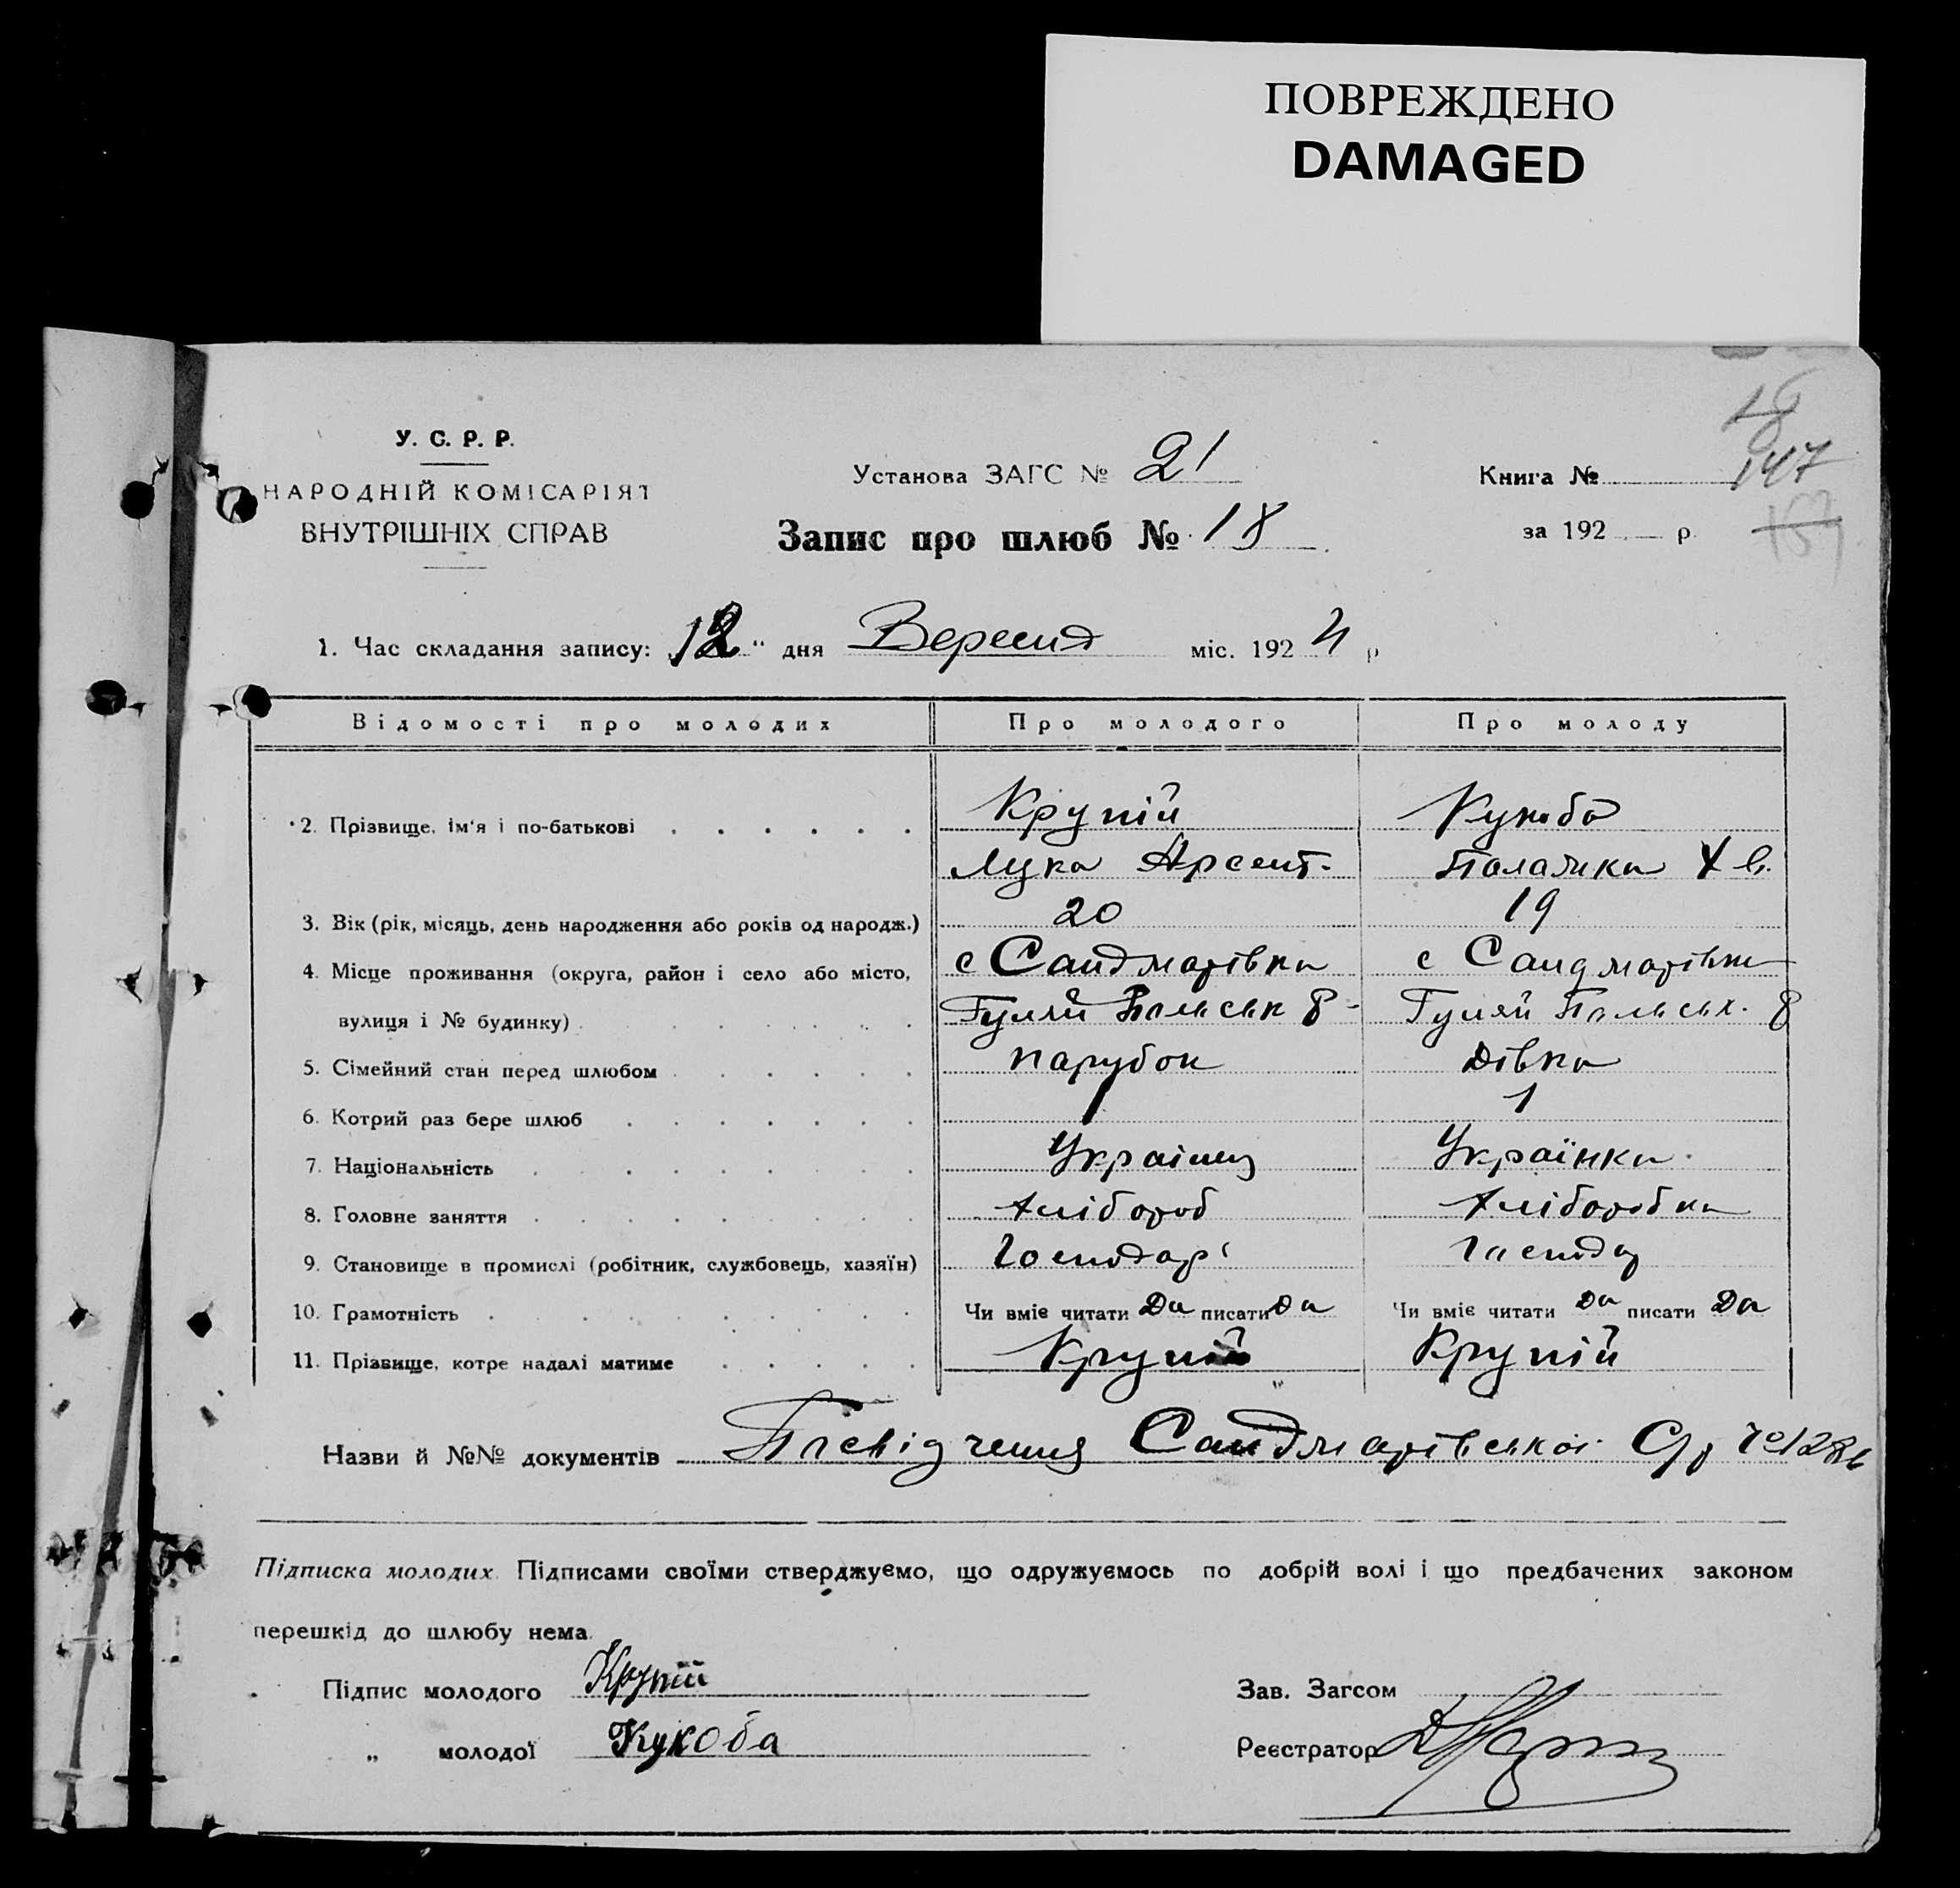 ПОВРЕЖДЕНО
DAMAGED
У. С. Р. Р.
НАРОДНІЙ КОМІСАРІЯТ
ВНУТРІШНІХ СПРАВ
Установа ЗАГС № 21
Запис про шлюб № 18
Книга №
147
за 192 р.
1. Час складання запису: 12 " дня Вересня міс. 1924 р
Відомості про молодих Про молодого Про молоду
2. Прізвище, ім'я і по-батькові Крупій Кукоба
Лука Арсент. Палажка
3. Вік (рік, місяць, день народження або років од народж.) 20 19
4. Місце проживання (округа, район і село або місто, с Сандмарівка с Сандмарівка
вулиця і № будинку) Гуляй Польськ Р Гуляй Польськ. Р
5. Сімейний стан перед шлюбом парубок дівка
6. Котрий раз бере шлюб 1 1
7. Національність Українец Українка
8. Головне заняття Хлібороб Хліборобка
9. Становище в промислі (робітник, службовець, хазяїн) Господар Господар
10. Грамотність Чи вміє читати Да писати Да Чи вміє читати Да писати Да
11. Прізвище, котре надалі матиме Крупій Крупій
Назви й №№ документів Посвідчення Сандмарівської
Підписка молодих. Підписами своїми стверджуємо, що одружуємось по добрій волі і що предбачених законом
перешкід до шлюбу нема.
Підпис молодого Крупій
Зав. Загсом
„ молодої Кукоба
Реєстратор